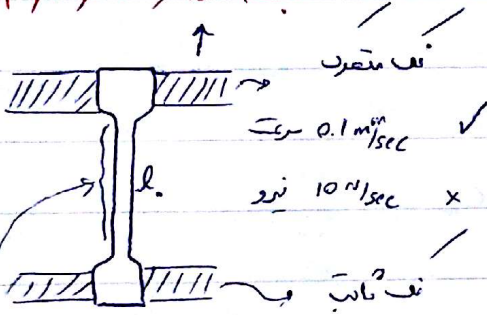 فک متحرک
سرعت 0.1 mm/sec ✓
نیرو 10 N/sec ×
l₀
فک ثابت